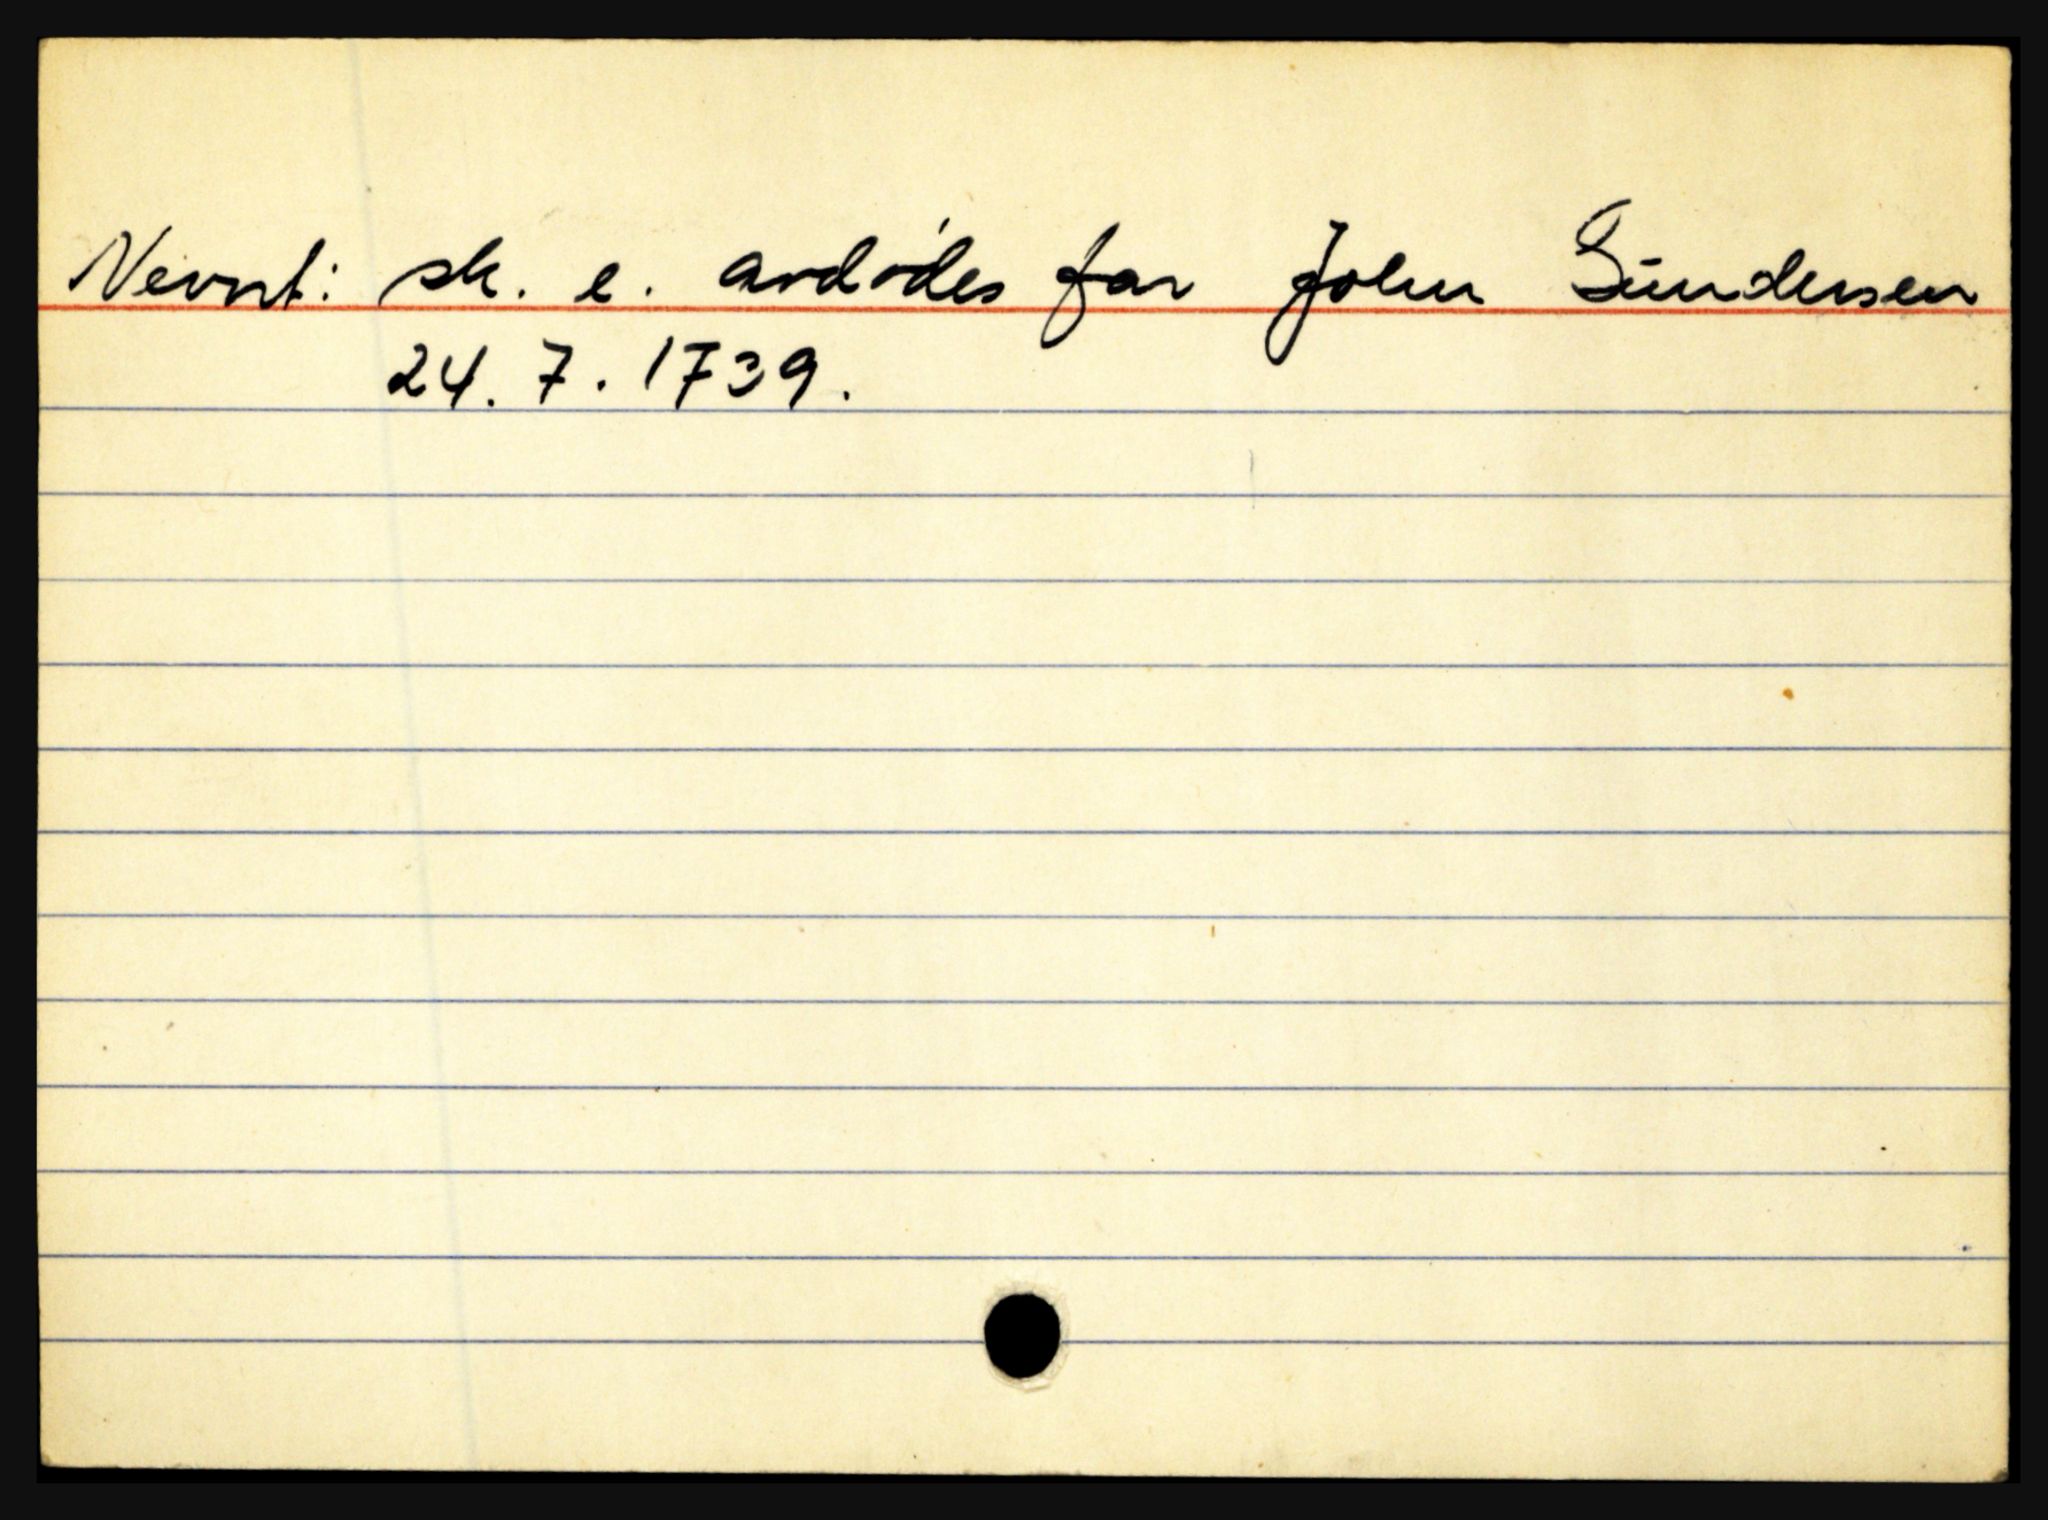 Nevnt: sk. e. avdødes far John Gundersen
24. 7. 1739.